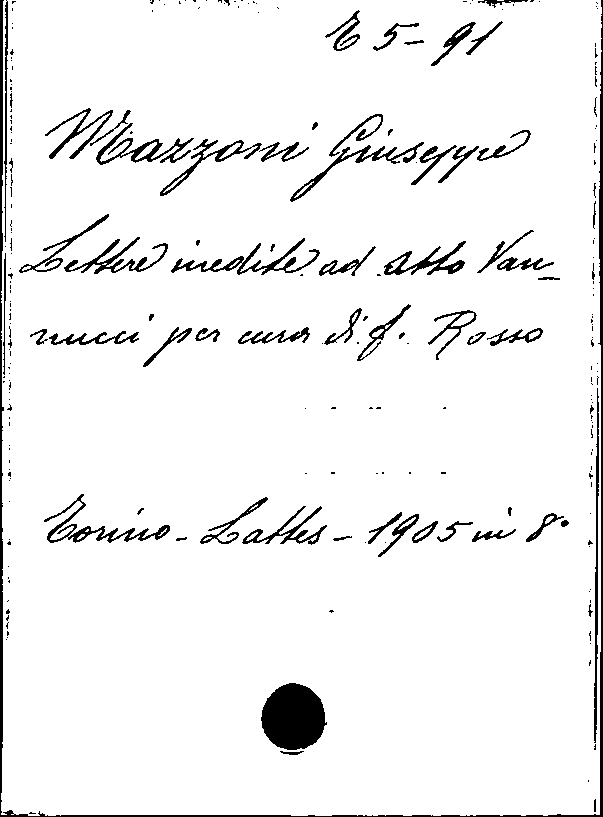 E 5-91
Mazzoni Giuseppe
Lettere inedite ad Atto Van-
nucci per cura di f. Rosso
Torino - Lattes - 1905 in 8°